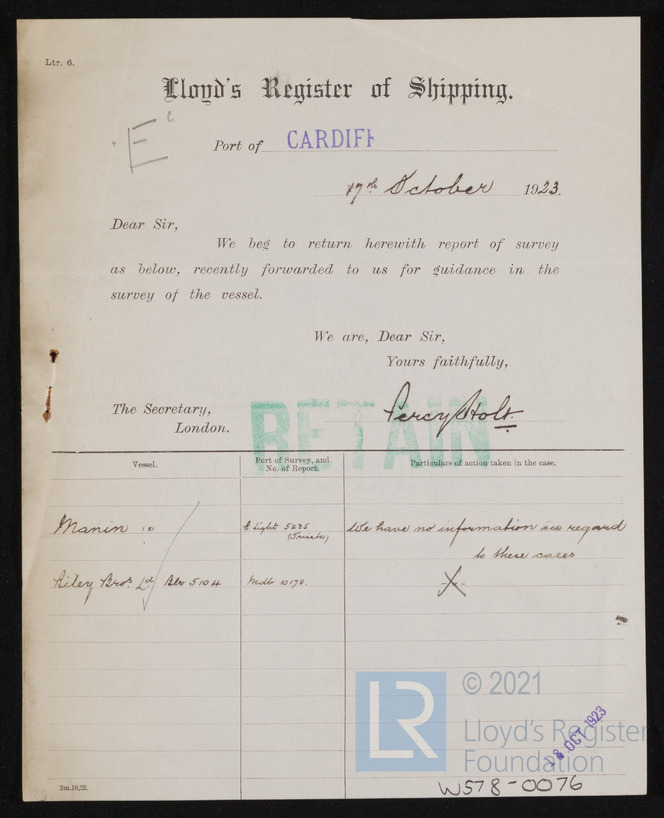 Ltr. 6.
Lloyd's Register of Shipping.
"E"
Port of CARDIFF
17th October 1923.
Dear Sir,
We beg to return herewith report of survey
as below, recently forwarded to us for guidance in the
survey of the vessel.
We are, Dear Sir,
Yours faithfully,
The Secretary,
London.
Percy Holt
RETAIN
Vessel.
Port of Survey, and
No. of Report.
Particulars of action taken in the case.
Manin
5235
We have no information regard
to these cases
Riley Bros Ld Blr 5104
Mdb 10178.
© 2021
LR
Lloyd's Register
Foundation
18 OCT 1923
W578-0076
2m,10,22.